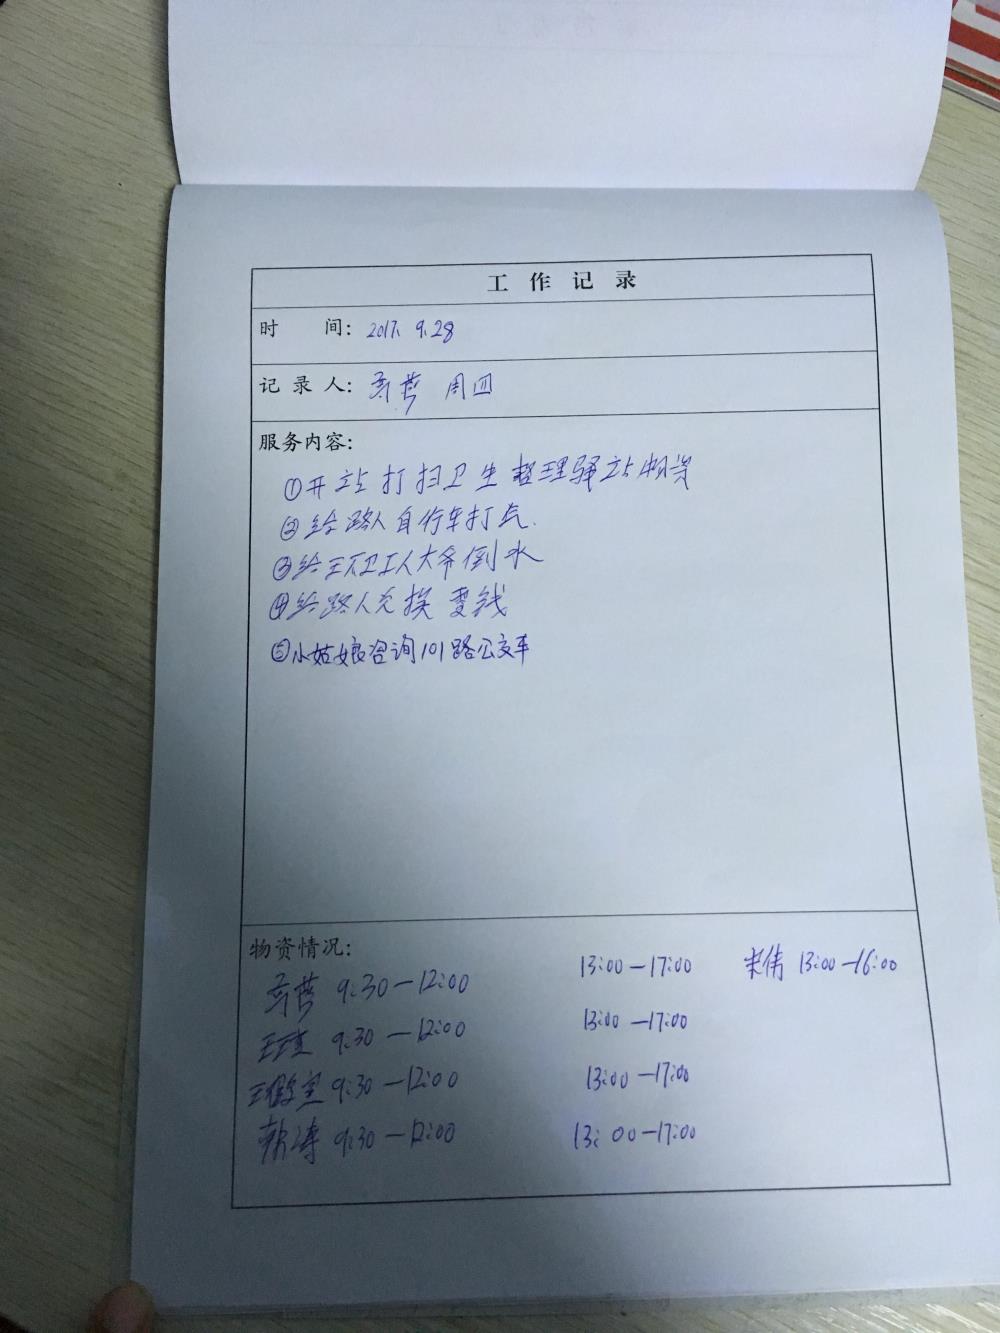 工作记录
时 间: 2017. 9.28
记录人: 周四
服务内容:
①开站打扫卫生整理驿站物资
②给路人自行车打气.
③给环卫工人大爷倒水
④给路人兑换零钱
⑤小姑娘咨询101路公交车
物资情况:
9:30—12:00 13:00—17:00 宋伟 13:00—16:00
9:30—12:00 13:00—17:00
9:30—12:00 13:00—17:00
9:30—12:00 13:00—17:00